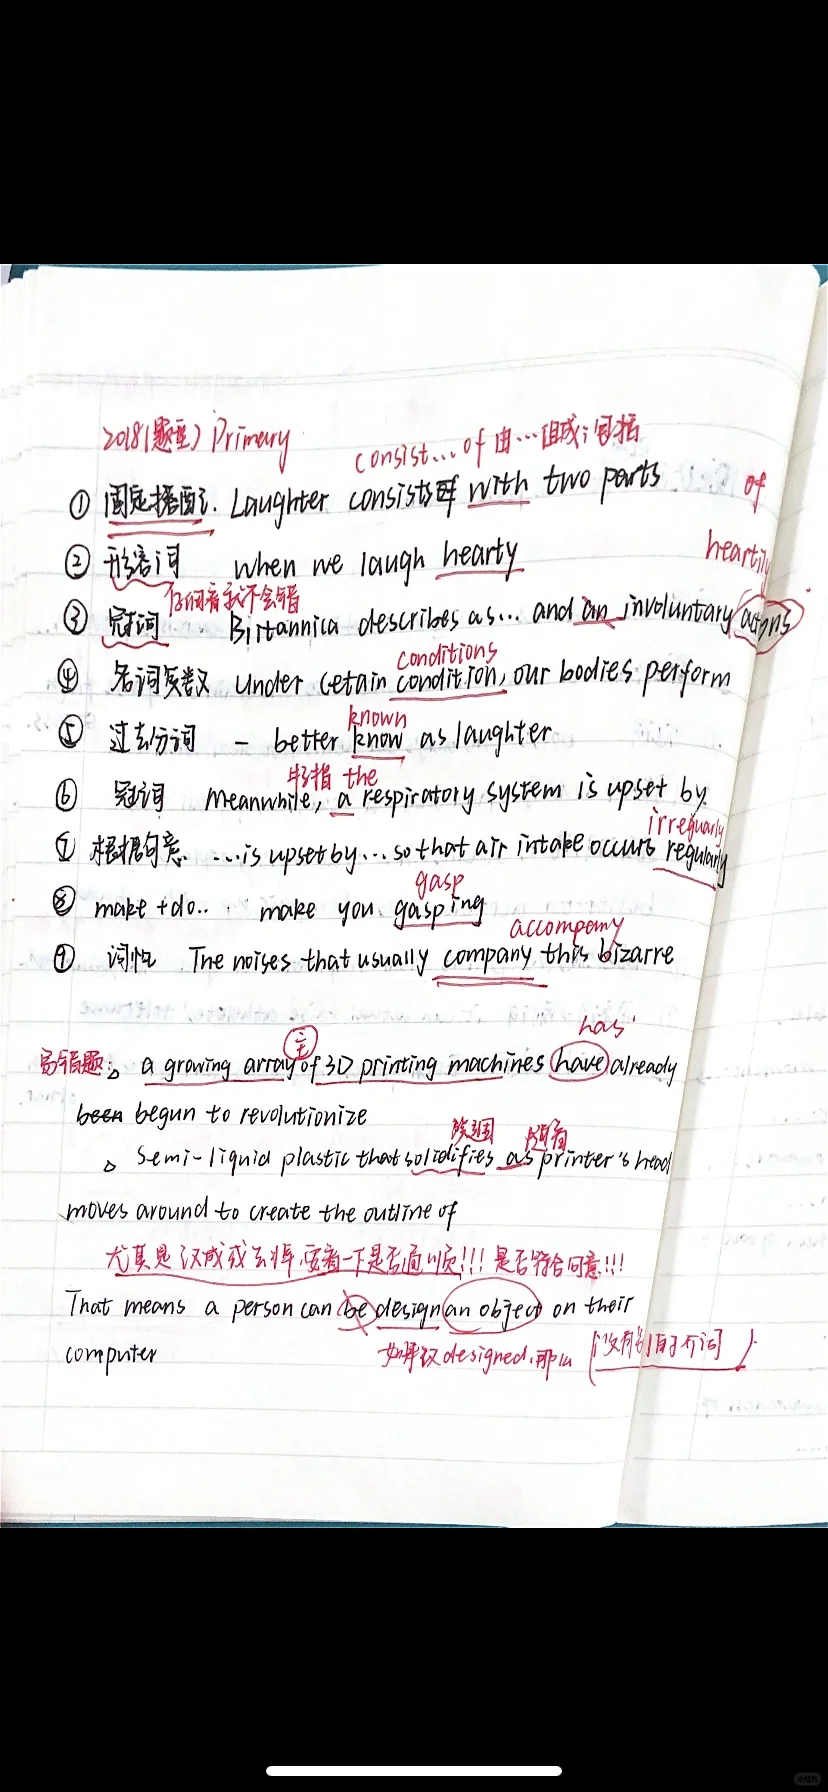 2018(题型) Primary
consist...of 由…组成;包括
① 固定搭配. Laughter consists with two parts of
② 形容词 when we laugh hearty heartily
任何看我不会错
③ 冠词 Birtannica describes as... and an involuntary actions
conditions
④ 名词复数 under cetain condition, our bodies perform
known
⑤ 过去分词 - better know as laughter
特指 the
⑥ 冠词 Meanwhile, a respiratory system is upset by.
irreguarly
⑦ 根据句意. ...is upset by... so that air intake occurs regularly
gasp
⑧ make + do.. . make you gasping
accompany
⑨ 词性 The noises that usually company this bizarre
has
易错题: a growing array of 3D printing machines have already
主
been begun to revolutionize
凝固 随着
Semi-liquid plastic that solidifies as printer's head
moves around to create the outline of
尤其是 改成或去掉,要看一下是否通顺!!! 是否符合句意!!!
That means a person can be design an object on their
computer 如果改designed,那么